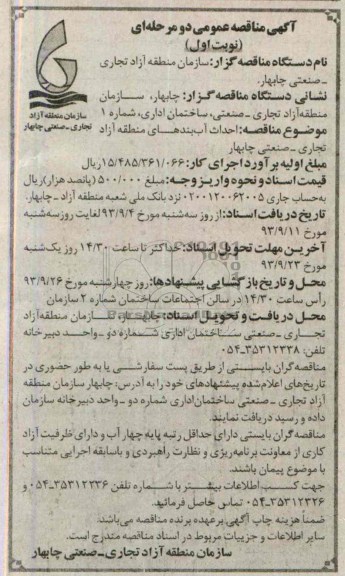 آگهی مناقصه عمومی دو مرحله‌ای
(نوبت اول)
نام دستگاه مناقصه گزار: سازمان منطقه آزاد تجاری
ـ صنعتی چابهار.
نشانی دستگاه مناقصه گزار: چابهار، سازمان
منطقه آزاد تجاری ـ صنعتی، ساختمان اداری، شماره ۱
موضوع مناقصه: احداث آب‌بندهای منطقه آزاد
تجاری ـ صنعتی چابهار
سازمان منطقه آزاد
تجاری ـ صنعتی چابهار
مبلغ اولیه برآورد اجرای کار: ۱۵/۴۸۵/۳۶۱/۰۶۶ ریال
قیمت اسناد و نحوه واریز وجه: مبلغ ۵۰۰/۰۰۰ (پانصد هزار) ریال
به‌حساب جاری ۰۲۰۰۱۲۰۰۶۲۰۰۵ نزد بانک ملی شعبه منطقه آزاد ـ چابهار.
تاریخ دریافت اسناد: از روز سه‌شنبه مورخ ۹۳/۹/۴ لغایت روز سه‌شنبه
مورخ ۹۳/۹/۱۱
آخرین مهلت تحویل اسناد: حداکثر تا ساعت ۱۴/۳۰ روز یک‌شنبه
مورخ ۹۳/۹/۲۳
محل و تاریخ بازگشایی پیشنهادها: روز چهارشنبه مورخ ۹۳/۹/۲۶
رأس ساعت ۱۴/۳۰ در سالن اجتماعات ساختمان شماره ۲ سازمان
محل دریافت و تحویل اسناد: چابهار، سازمان منطقه آزاد
تجاری ـ صنعتی ساختمان اداری شماره دو ـ واحد دبیرخانه
تلفن: ۳۵۳۱۲۳۳۸-۰۵۴
مناقصه گران بایستی از طریق پست سفارشی یا به طور حضوری در
تاریخ‌های اعلام‌شده پیشنهادهای خود را به آدرس: چابهار سازمان منطقه
آزاد تجاری ـ صنعتی ساختمان اداری شماره دو ـ واحد دبیرخانه سازمان
داده و رسید دریافت نمایند.
مناقصه گران بایستی دارای حداقل رتبه پایه چهار آب و دارای ظرفیت آزاد
کاری از معاونت برنامه‌ریزی و نظارت راهبردی و باسابقه اجرایی متناسب
با موضوع پیمان باشند.
جهت کسب اطلاعات بیشتر با شماره تلفن ۳۵۳۱۲۳۳۶-۰۵۴ و
۳۵۳۱۲۳۲۶-۰۵۴ تماس حاصل فرمائید.
ضمناً هزینه چاپ آگهی برعهده برنده مناقصه می‌باشد.
سایر اطلاعات و جزییات مربوط در اسناد مناقصه مندرج است.
سازمان منطقه آزاد تجاری ـ صنعتی چابهار